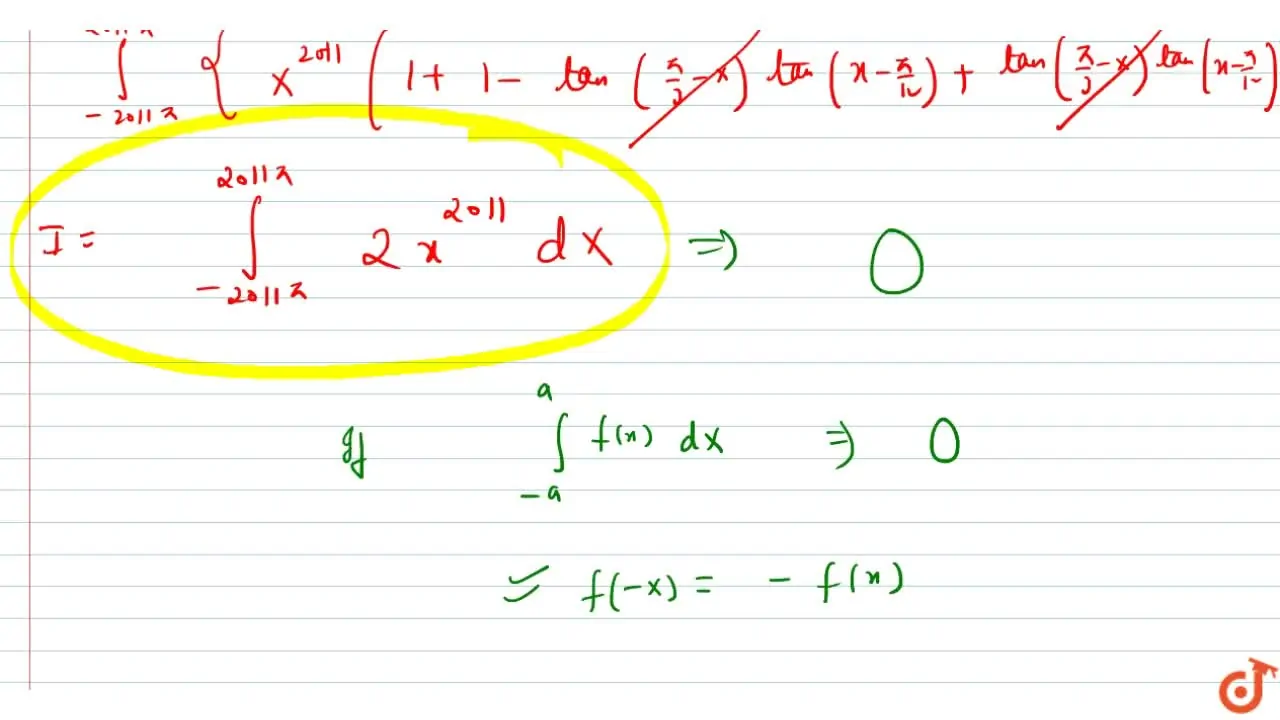 ∫_{-2011π}^{2011π} { x^{2011} ( 1 + 1 - tan(π/3 - x) tan(x - π/12) + tan(π/3 - x) tan(x - π/12)
I = ∫_{-2011π}^{2011π} 2x^{2011} dx ⇒ 0
If ∫_{-a}^{a} f(x) dx ⇒ 0
f(-x) = - f(x)